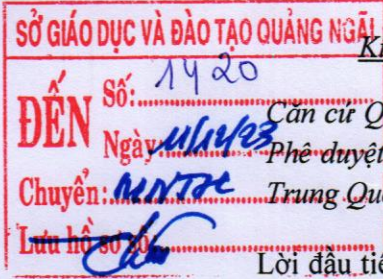 SỞ GIÁO DỤC VÀ ĐÀO TẠO QUẢNG NGÃI
ĐẾN
Số: 1420
Ngày 11/12/23
Chuyển:
Lưu hồ sơ số
Căn cứ Q
Phê duyệt
Trung Qu
Lời đầu ti